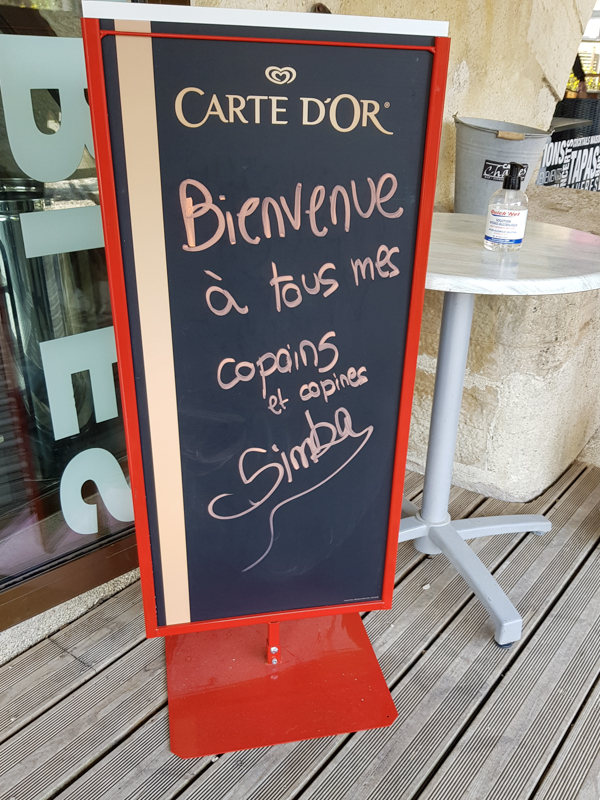 CARTE D'OR®
Bienvenue
à tous mes
copains
et copines
Simba
BIÈS
Quick Wet